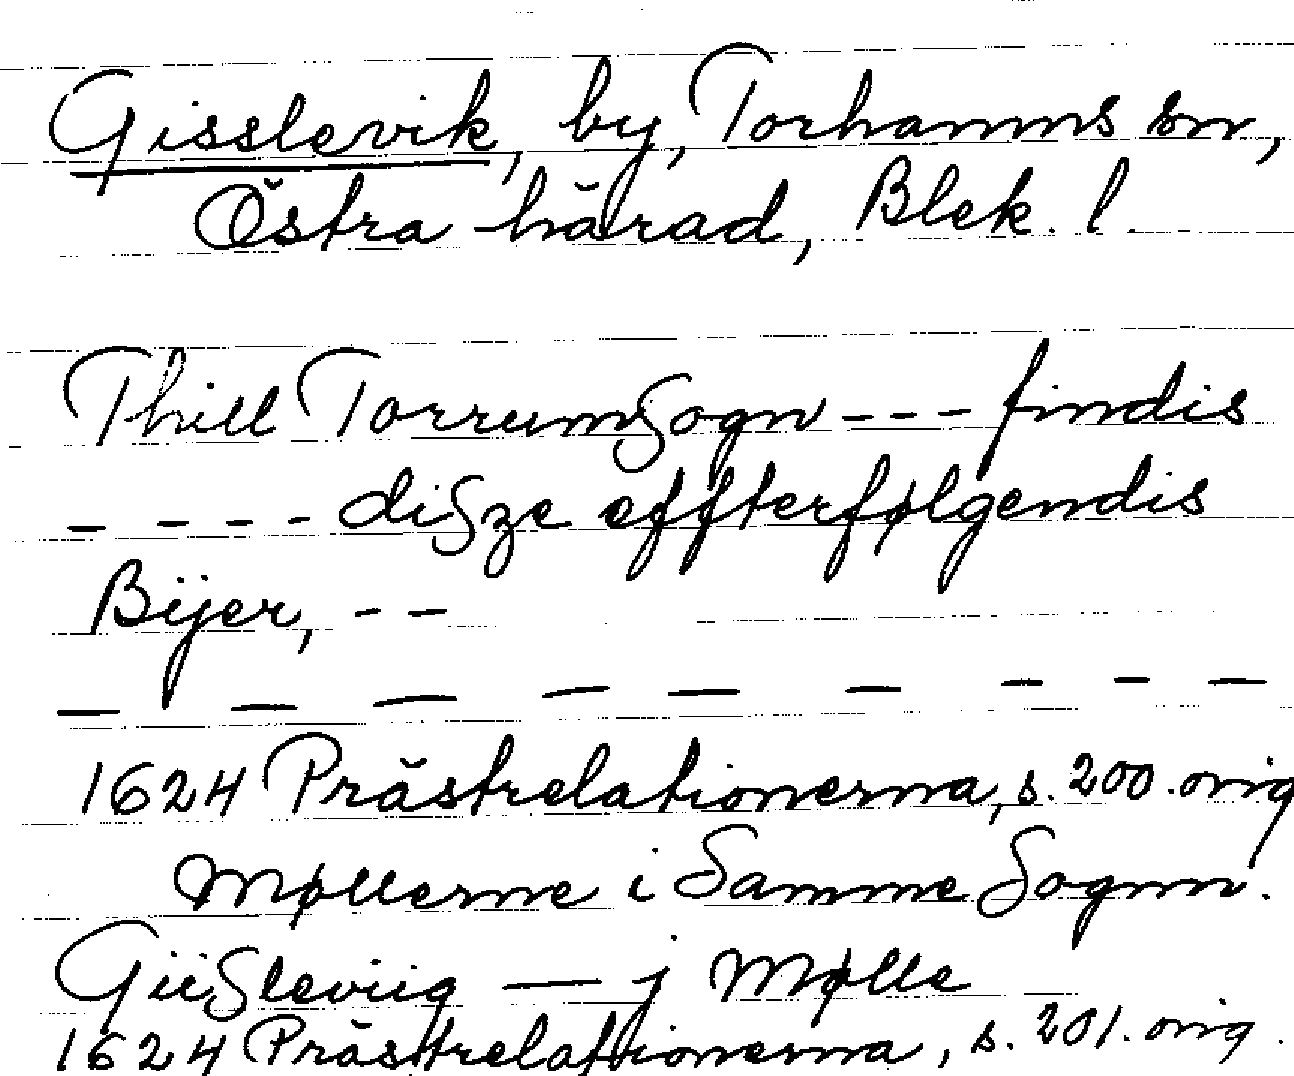 Gisslevik, by, Torhamns sn,
Östra härad, Blek. l.
Thill TorrumSogn --- findis
---- diSze effterfølgendis
Bÿer, --
— — — — — — — — —
1624 Prästrelationerna, s. 200. orig
Møllerne i Samme Sognn.
GiiSleviig — j Mølle
1624 Prästrelationerna, s. 201. orig.